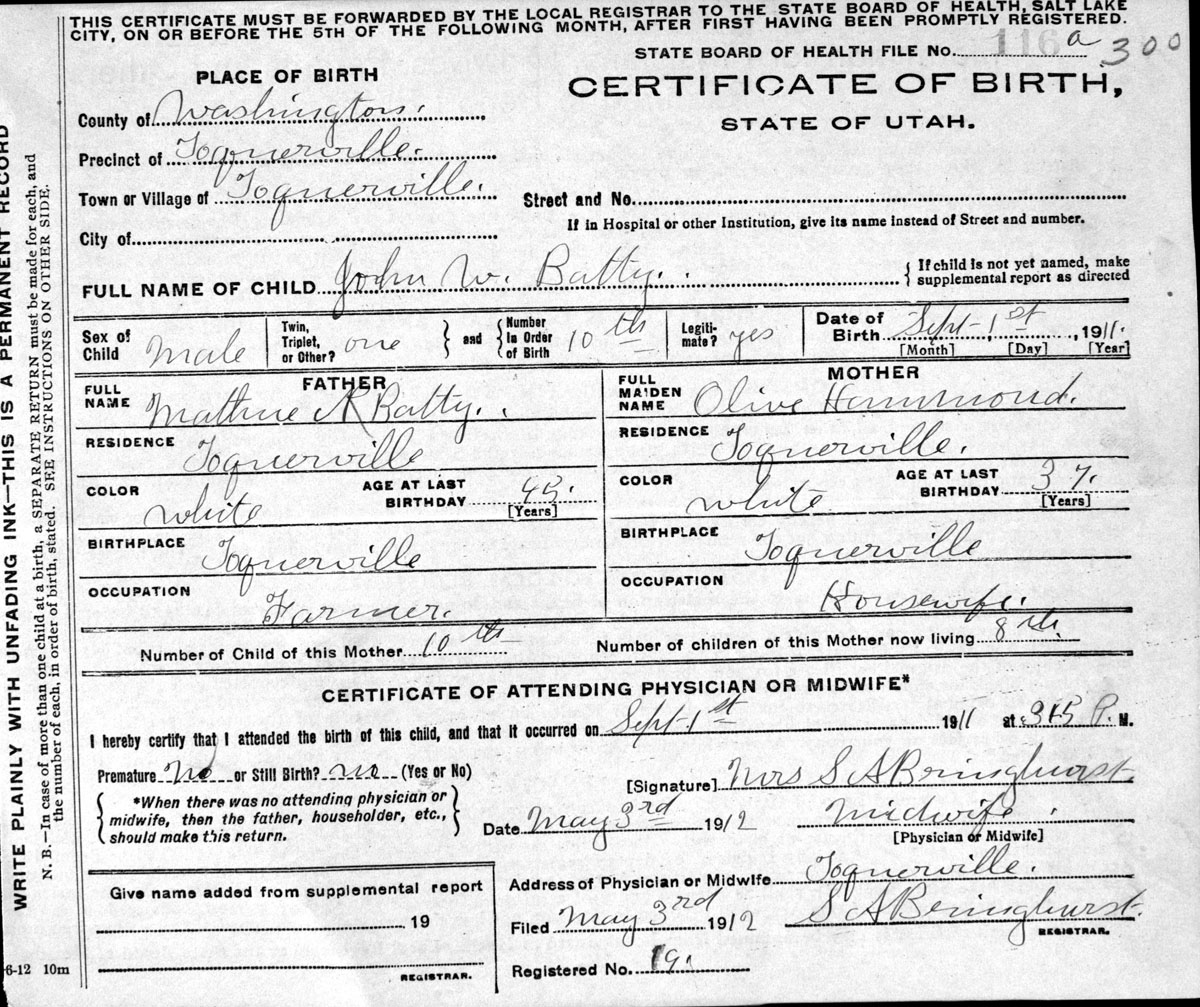 THIS CERTIFICATE MUST BE FORWARDED BY THE LOCAL REGISTRAR TO THE STATE BOARD OF HEALTH, SALT LAKE
CITY, ON OR BEFORE THE 5TH OF THE FOLLOWING MONTH, AFTER FIRST HAVING BEEN PROMPTLY REGISTERED.
STATE BOARD OF HEALTH FILE No. 116 a 300
PLACE OF BIRTH
CERTIFICATE OF BIRTH,
STATE OF UTAH.
County of Washington.
Precinct of Toquerville.
Town or Village of Toquerville.
Street and No.
If in Hospital or other Institution, give its name instead of Street and number.
City of
FULL NAME OF CHILD John W. Batty.
{ If child is not yet named, make
supplemental report as directed
Sex of Child Male
Twin, Triplet, or Other? one } and { Number In Order of Birth 10th
Legitimate? yes
Date of Birth Sept-1st, 1911.
[Month] [Day] [Year]
FATHER
FULL NAME Batty.
RESIDENCE Toquerville
COLOR white
AGE AT LAST BIRTHDAY 45.
[Years]
BIRTHPLACE Toquerville
OCCUPATION Farmer.
MOTHER
FULL MAIDEN NAME Olive Hammond.
RESIDENCE Toquerville.
COLOR white
AGE AT LAST BIRTHDAY 37.
[Years]
BIRTHPLACE Toquerville
OCCUPATION Housewife.
Number of Child of this Mother 10th
Number of children of this Mother now living 8th.
CERTIFICATE OF ATTENDING PHYSICIAN OR MIDWIFE*
I hereby certify that I attended the birth of this child, and that it occurred on Sept-1st 1911 at P. M.
Premature No or Still Birth? no (Yes or No)
[Signature] Mrs S A Beringhurst.
{ *When there was no attending physician or
midwife, then the father, householder, etc.,
should make this return. }
Date May 3rd 1912
Midwife.
[Physician or Midwife]
Give name added from supplemental report
19
REGISTRAR.
Address of Physician or Midwife Toquerville.
Filed May 3rd 1912 S A Beringhurst.
REGISTRAR.
Registered No. 19.
6-12 10m
WRITE PLAINLY WITH UNFADING INK—THIS IS A PERMANENT RECORD
N. B.—In case of more than one child at a birth, a SEPARATE RETURN must be made for each, and
the number of each, in order of birth, stated. SEE INSTRUCTIONS ON OTHER SIDE.